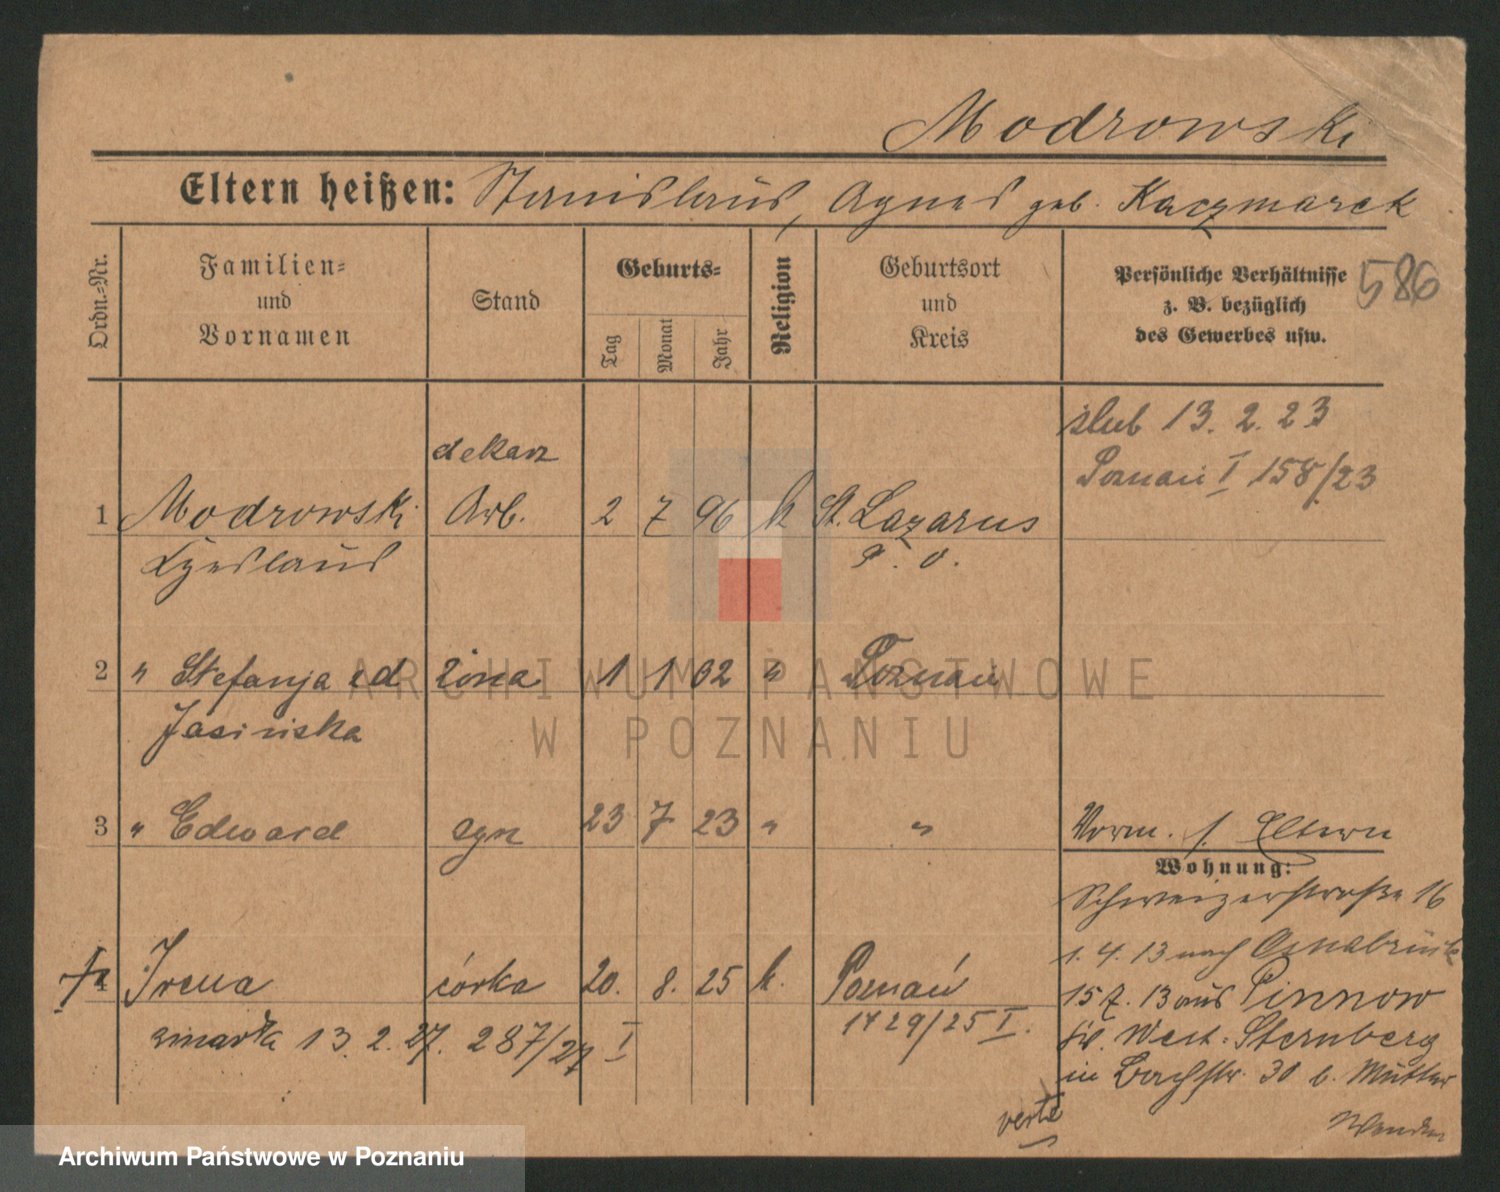 Modrowski
Eltern heißen: Stanislaus, Agnes geb. Kaczmarek
Ordn.=Nr.
Familien=
und
Vornamen
Stand
Geburts=
Tag
Monat
Jahr
Religion
Geburtsort
und
Kreis
Persönliche Verhältnisse
z. B. bezüglich
des Gewerbes usw.
586
ślub 13. 2. 23
Poznań I 158/23
dekarz
1 Modrowski Arb. 2 7 96 k St. Lazarus
Czeslaus P. O.
2 " Stefanja zd żona 1 1 02 " Poznań
Jasińska
3 " Edward syn 23 7 23 " "
Vorm. s. Eltern
Wohnung:
Schweizerstraße 16
4 Irena córka 20. 8. 25 k. Poznań
1729/25 I.
zmarła 13. 2. 27. 287/27 I
1. 4. 13 nach Osnabrück
15 7. 13 aus Pinnow
Kr. West-Sternberg
in Bachstr. 30 b. Mutter
verte
Wenden
ARCHIWUM PAŃSTWOWE
W POZNANIU
Archiwum Państwowe w Poznaniu